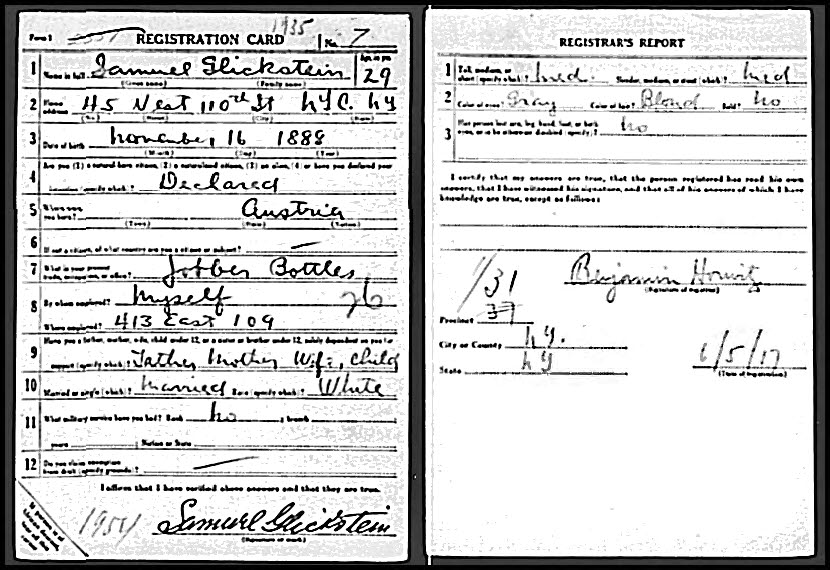 1935
Form 1 REGISTRATION CARD No. 7
1 Name in full Samuel Glickstein Age, in yrs. 29
(Given name) (Family name)
2 Home address 45 West 110th St NYC. NY
(No.) (Street) (City) (State)
3 Date of birth November 16 1888
(Month) (Day) (Year)
4 Are you (1) a natural born citizen, (2) a naturalized citizen, (3) an alien, (4) or have you declared your
intention (specify which)? Declared
5 Where were you born? Austria
(Town) (State) (Nation)
6 If not a citizen, of what country are you a citizen or subject? —
7 What is your present trade, occupation, or office? Jobber Bottles
8 By whom employed? Myself 26
Where employed? 413 East 109
9 Have you a father, mother, wife, child under 12, or a sister or brother under 12, solely dependent on you for
support (specify which)? Father Mother Wife, child
10 Married or single (which)? Married Race (specify which)? White
11 What military service have you had? Rank no ; branch
years ; Nation or State
12 Do you claim exemption from draft (specify grounds)? —
I affirm that I have verified above answers and that they are true.
Samuel Glickstein
(Signature or mark)
REGISTRAR'S REPORT
1 Tall, medium, or short (specify which)? Med. Slender, medium, or stout (which)? Med
2 Color of eyes? Gray Color of hair? Blond Bald? No
3 Has person lost arm, leg, hand, foot, or both eyes, or is he otherwise disabled (specify)? No
I certify that my answers are true, that the person registered has read his own
answers, that I have witnessed his signature, and that all of his answers of which I have
knowledge are true, except as follows:
Benjamin Horwitz
(Signature of registrar)
31
Precinct 37
City or County NY.
State NY
6/5/17
(Date of registration)